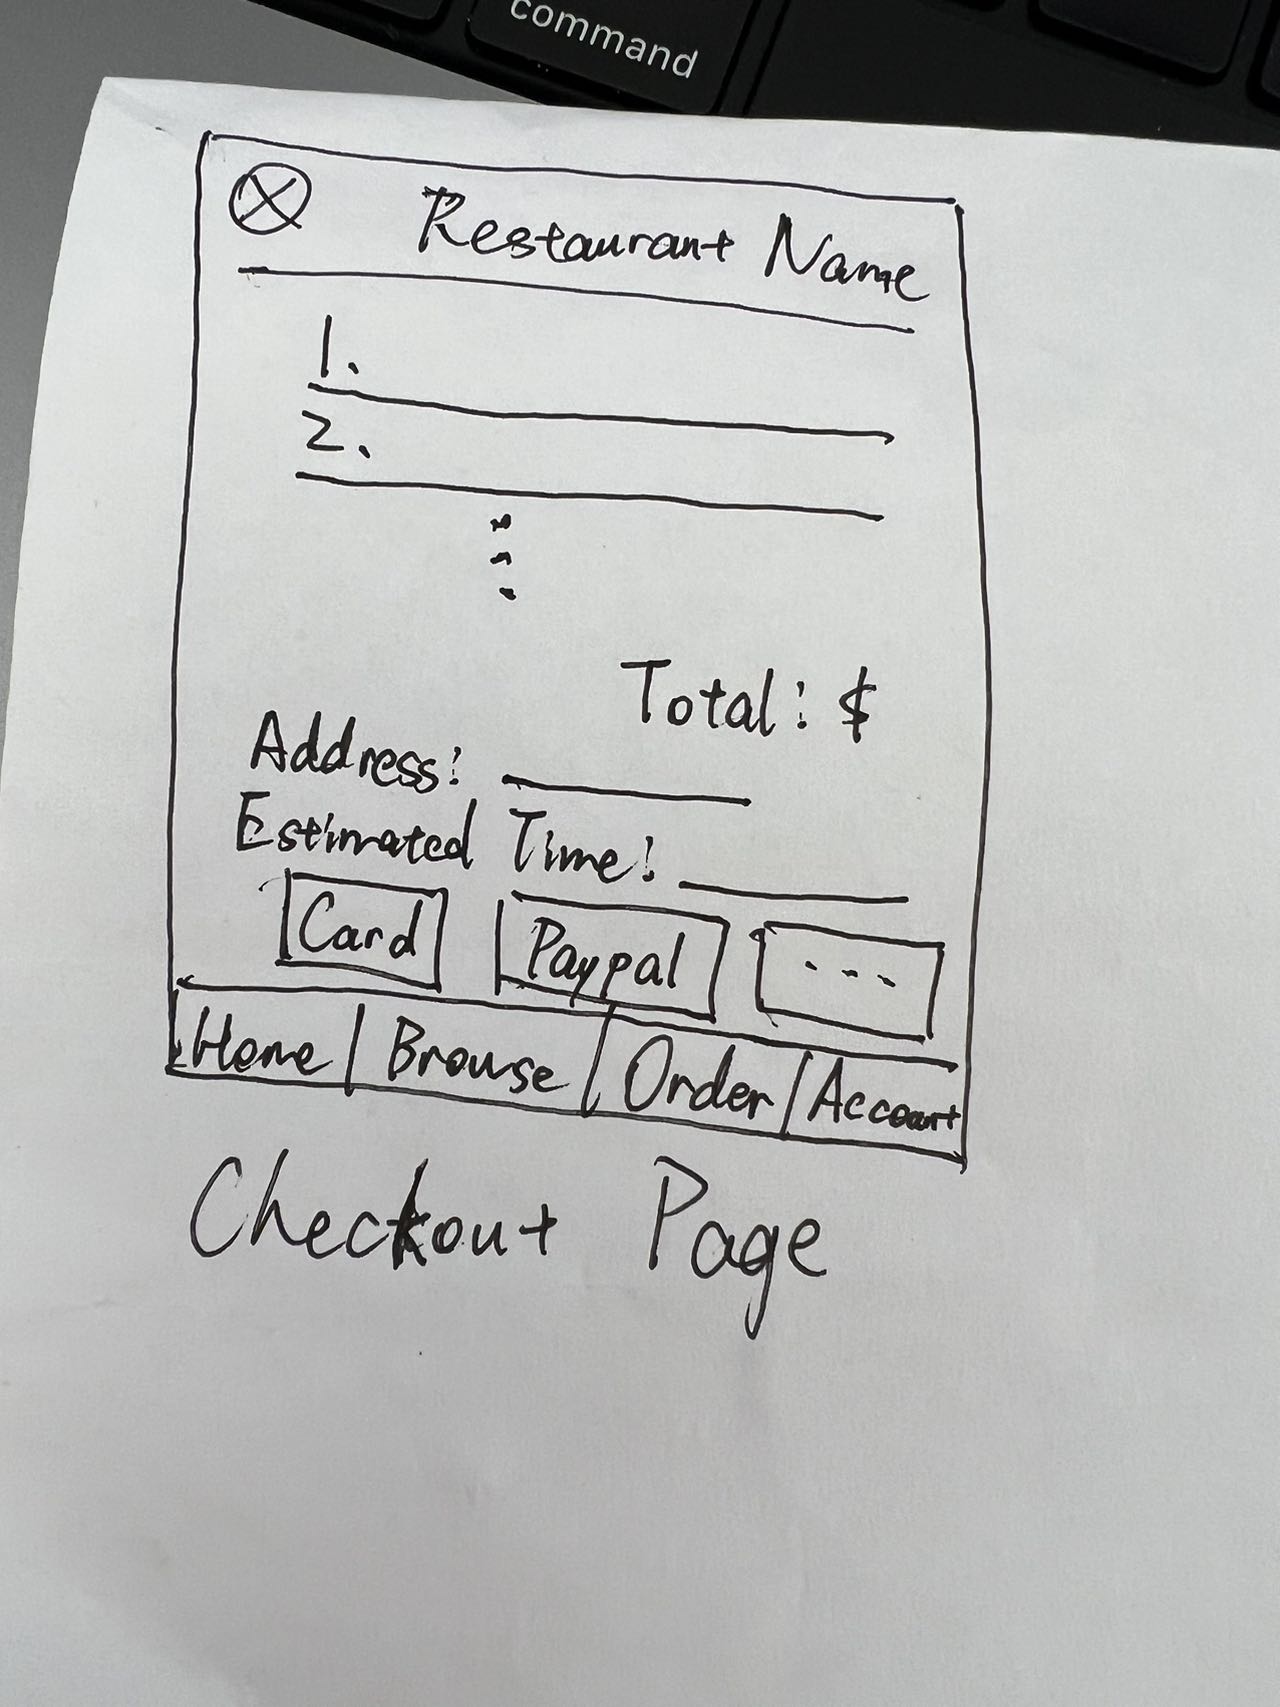 command
Restaurant Name
1.
2.
Total: $
Address:
Estimated Time:
Card Paypal ---
Home Browse Order Account
Checkout Page